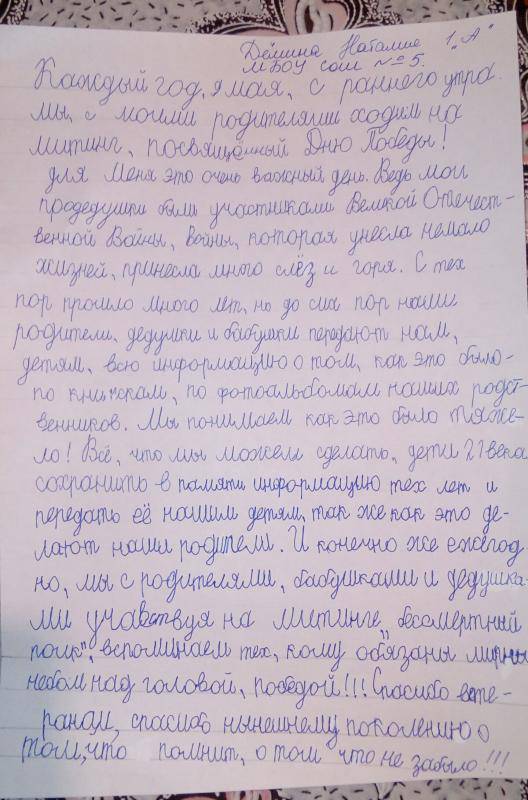 Дёмина Наталия 1 „А"
МБОУ СОШ №5.
Каждый год, 9 мая, с раннего утра
мы, с моими родителями ходим на
митинг, посвящённый Дню Победы!
Для меня это очень важный день. Ведь мои
прадедушки были участниками Великой Отечест-
венной Войны, войны, которая унесла немало
жизней, принесла много слёз и горя. С тех
пор прошло много лет, но до сих пор наши
родители, дедушки и бабушки передают нам,
детям, всю информацию о том, как это было-
по книжкам, по фотоальбомам наших родст-
венников. Мы понимаем как это было тяже-
ло! Всё, что мы можем сделать, дети 21 века
сохранить в памяти информацию тех лет и
передать её нашим детям, так же как это де-
лают наши родители. И конечно же ежегод
но, мы с родителями, бабушками и дедушка-
ми учавствуя на митинге „бессмертный
полк", вспоминаем тех, кому обязаны мирным
небом над головой, победой!!! Спасибо вете-
ранам, спасибо нынешнему поколению о
том, что помнит, о том что не забыло!!!